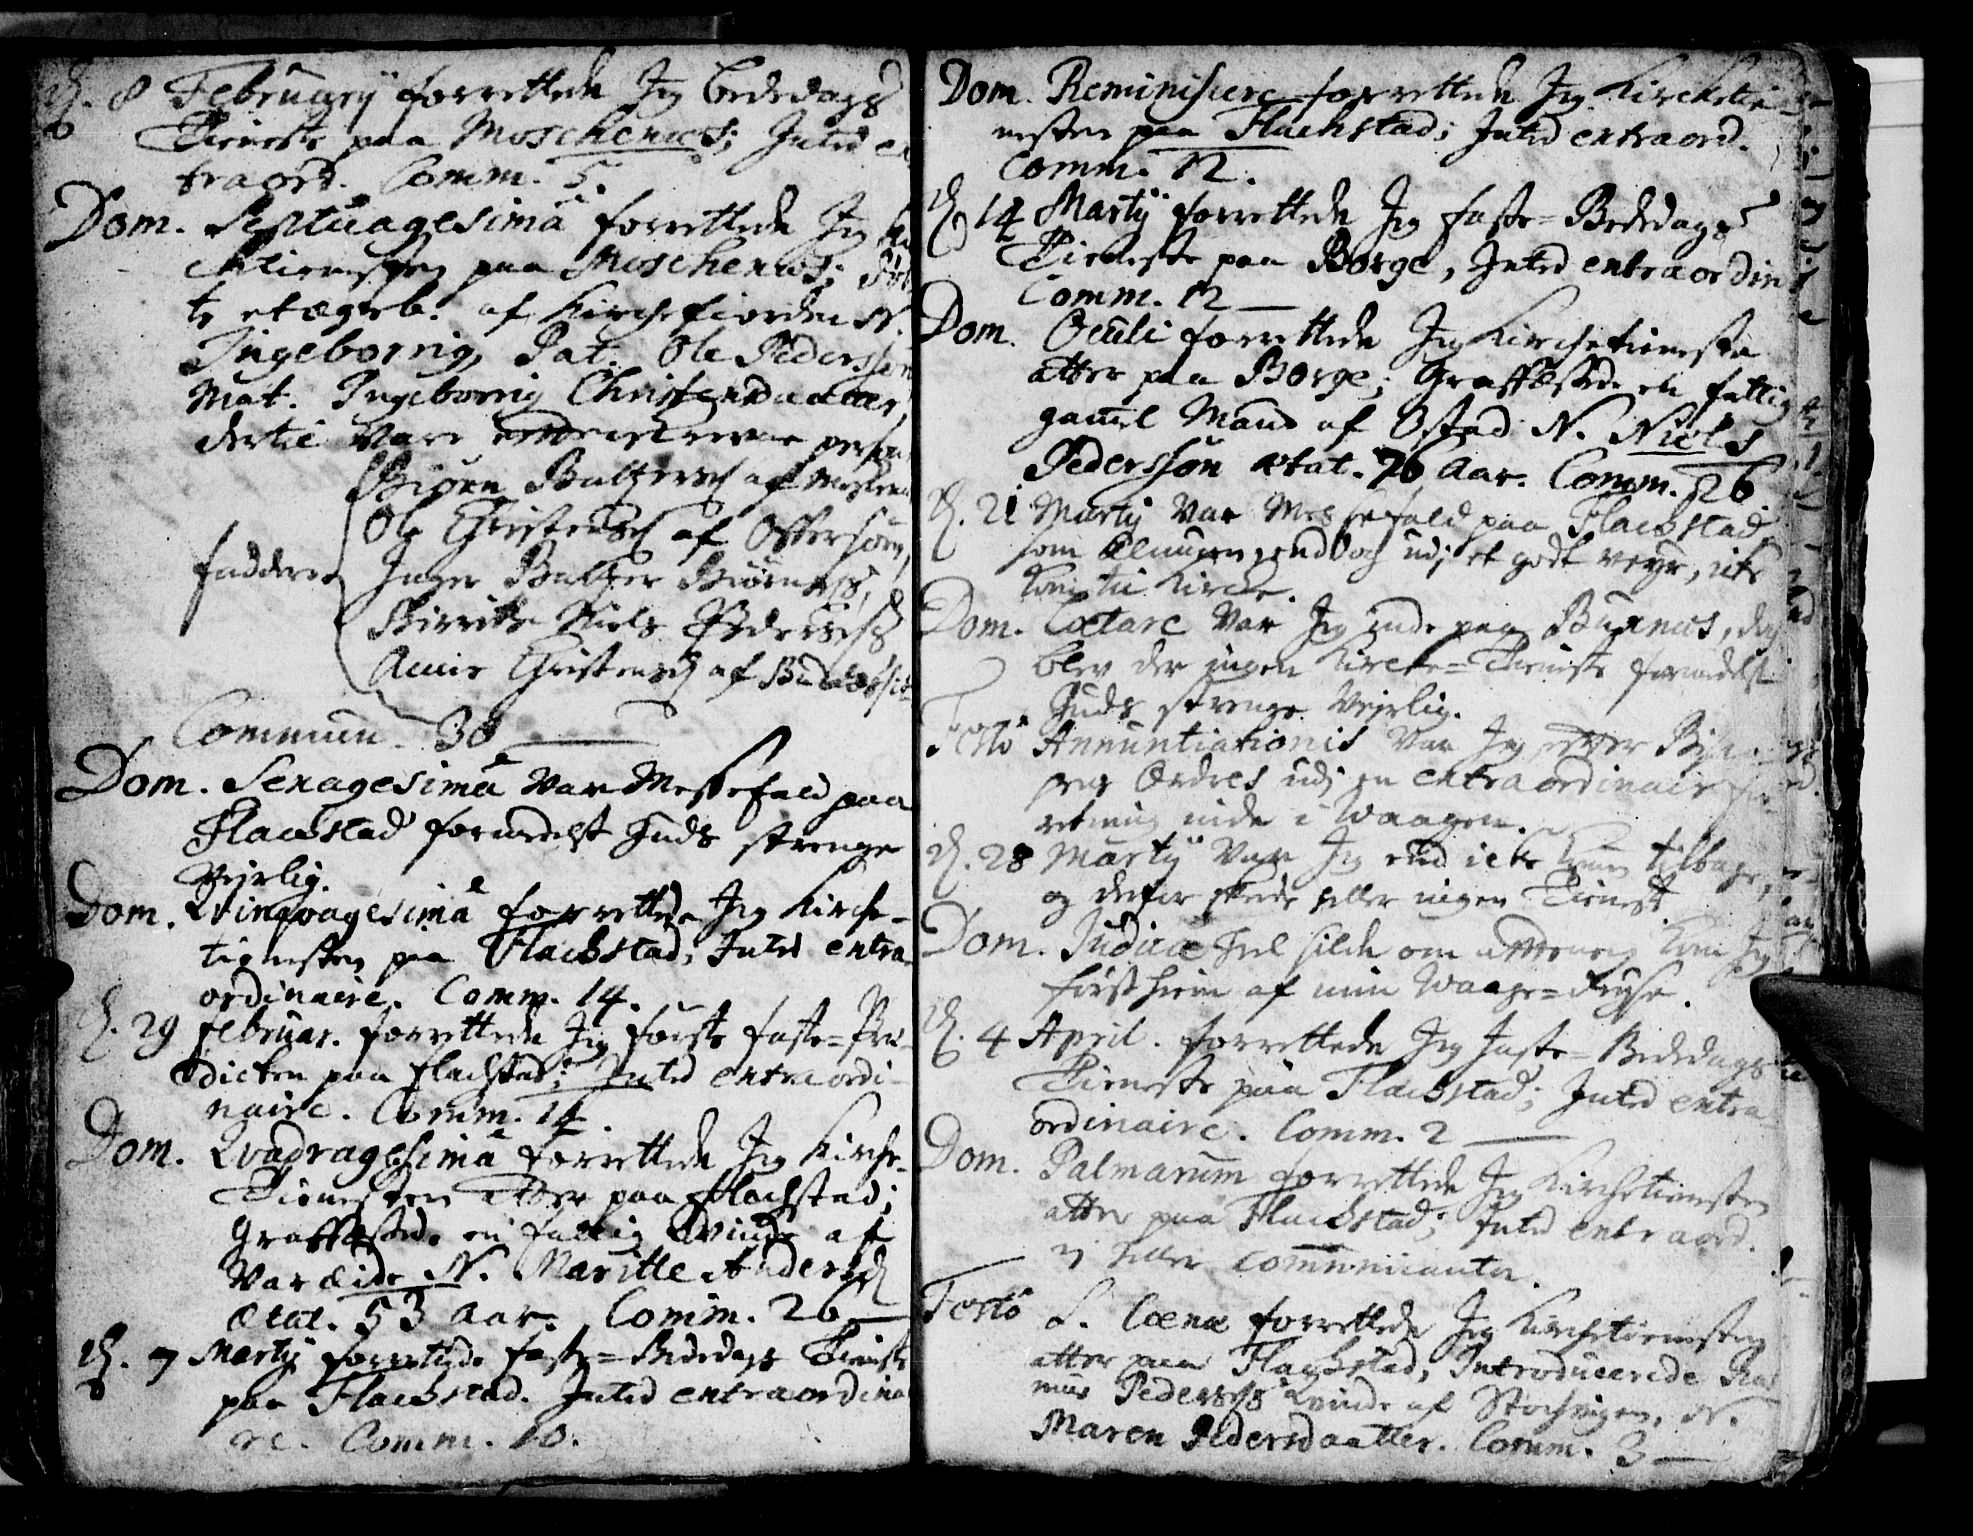 d. 8 Februarij forrettede Jeg Bededags
Tieneste paa Moschenæs; Inted ex
traord. Comm. 5.
Dom. Septuagesimâ forrettede Jeg
paa Moschenæs;
te et ægteb. af Kirchefiorden N.
Ingeborrig, Pat. Ole Pederssen
Mat. Ingeborrig Christensdaatter,
dertil vare person
Biørn Baltzersøn af
Ole Christensøn af Offersøen,
faddere Inger Baltzer Biørnssøns,
Birritte Niels Pederssøns
Anne Christensd. af
Commun. 38
Dom. Sexagesimâ var Messefald paa
Flackstad formedelst Guds strenge
Vejrlig.
Dom. Qvinqvagesimâ forrettede Jeg Kirche-
tienesten paa Flackstad, Inted extra-
ordinaire. Comm. 14.
d. 29 Februar. forrettede Jeg første faste-Præ-
dicken paa Flackstad; Inted extraordi-
naire. Comm. 14
Dom. Qvadragesimâ forrettede Jeg Kirche-
Tienesten atter paa Flachstad;
Graffæstede en fattig Qvinde af
Varæide N. Maritte Andersd.
Ætat. 53 Aar. Comm. 26
d. 7 Martij forrettede faste-Bededags Tieneste
paa Flackstad. Inted extraordinai
re. Comm. 10.
Dom. Reminiscere forrettede Jeg Kirchetie-
nesten paa Flachstad; Inted extraord.
Comm. 12.
d. 14 Martij forrettede Jeg faste-Bededags
Tieneste paa Borge, Inted extraordin
Comm. 12
Dom. Oculi forrettede Jeg Kirchetienesten
atter paa Borge; Graffæstede en fattig
gamel Mand af Ostad N. Niels
Pederssøn ætat. 76 Aar. Comm. 26
d. 21 Martij var Messefald paa Flackstad,
som Almuen endog udj et godt veyr, icke
kom til Kircke.
Dom. Lætare var Jeg inde paa Buxnæs, dog
blev der ingen Kircke-Tieneste formedelst
Guds strenge Vejrlig.
Festo Annuntiationis var Jeg efter
Ordres udj en extraordinair for-
retning inde i Waagen.
d. 28 Martij var Jeg end icke kom tilbage,
og derfor skede heller ingen Tieneste
Dom. Judica hel silde om afftenen kom Jeg
først hiem af min Waage-Reyse.
d. 4 April. forrettede Jeg Faste-Bededags
Tieneste paa Flackstad; Inted extra
ordinaire. Comm. 2
Dom. Palmarum forrettede Jeg Kirchetienesten
atter paa Flackstad; Inted extraord.
ej heller communicanter.
Festo S. Cœnæ forrettede Jeg Kirchetienesten
atter paa Flachstad, Introducerede Ras
mus Pederssøns Qvinde af N.
Maren Pedersdaatter. Comm. 3